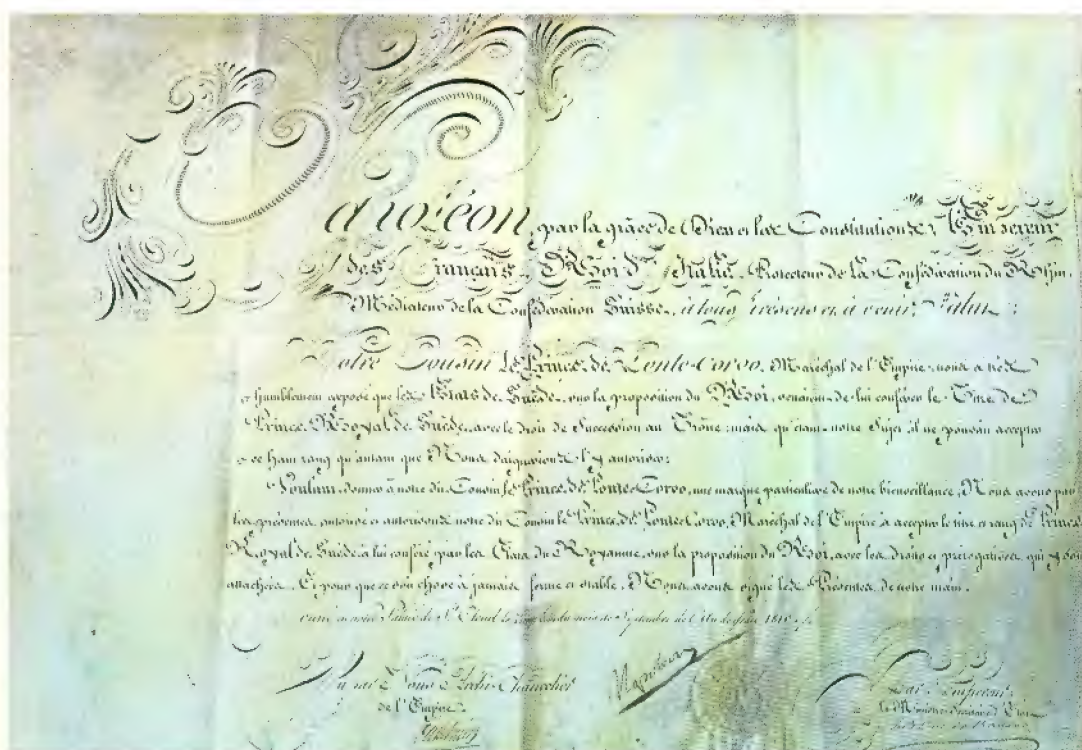 Napoléon, par la grâce de Dieu et les Constitutions, Empereur
des Français, Roi d'Italie, Protecteur de la Confédération du Rhin,
Médiateur de la Confédération Suisse, à tous présens et à venir, Salut :
Notre Cousin le Prince de Ponte-Corvo, Maréchal de l'Empire, nous a très
humblement exposé que les Etats de Suède, sur la proposition du Roi, venaient de lui conférer le Titre de
Prince Royal de Suède, avec le droit de Succession au Trône ; mais qu'étant notre Sujet, il ne pouvait accepter
ce haut rang qu'autant que Nous daignerions l'y autoriser :
Voulant donner à notre dit Cousin le Prince de Ponte-Corvo, une marque particulière de notre bienveillance, Nous avons par
les présentes, autorisé et autorisons notre dit Cousin le Prince de Ponte-Corvo, Maréchal de l'Empire à accepter le titre et rang de Prince
Royal de Suède, à lui conféré par les Etats du Royaume, sur la proposition du Roi, avec les droits et prérogatives qui y sont
attachés. Et pour que ce soit chose à jamais ferme et stable, Nous avons signé les Présentes de notre main.
en notre Palais de St. Cloud le du mois de Septembre de l'An de grâce 1810
Vu par Nous Archi-Chancelier
de l'Empire.
Par l'Empereur
le Ministre Secrétaire d'Etat